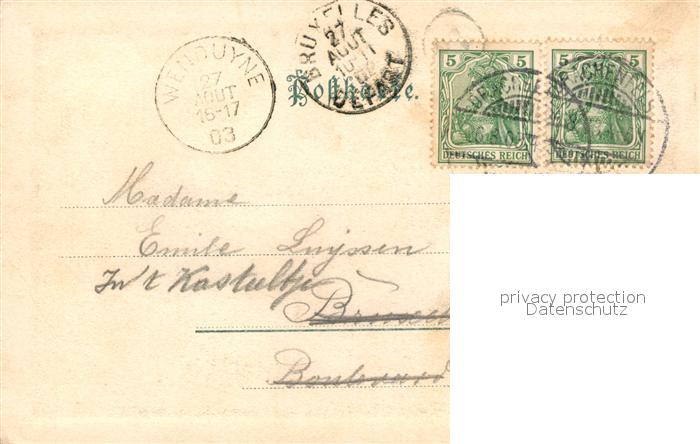 BRUXELLES
27
AOUT
DEPART
WENDUYNE
27
AOUT
16-17
03
Postkarte.
5 5
5 5
DEUTSCHES REICH
DEUTSCHES REICH
Madame
Emile Luyssen
In 't Kasteeltje
Boulevard
privacy protection
Datenschutz